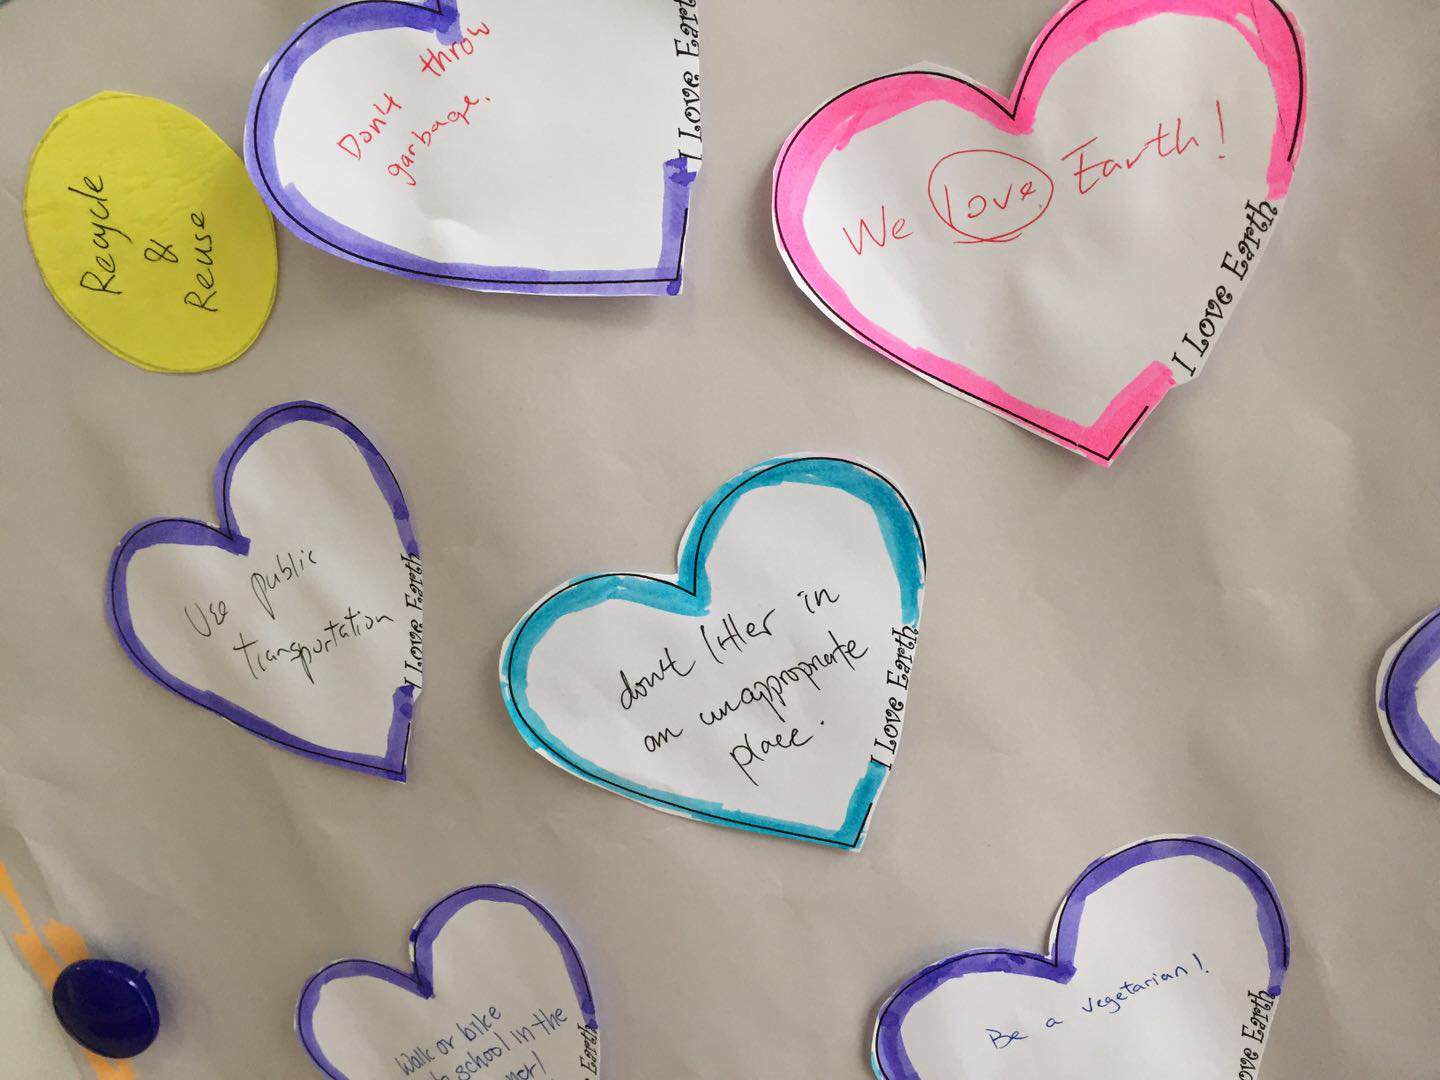 Don't throw
garbage.
I Love Earth
We love Earth!
I Love Earth
Recycle
&
Reuse
Use public
transportation
I Love Earth
don't litter in
an unappropriate
place.
I Love Earth
Walk or bike
school in the
Earth
Be a vegetarian!
Earth